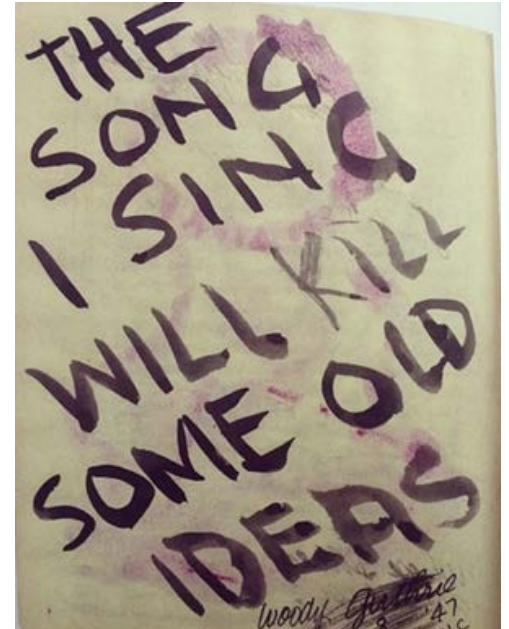 THE
SONG
I SING
WILL KILL
SOME OLD
IDEAS
Woody Guthrie
'47